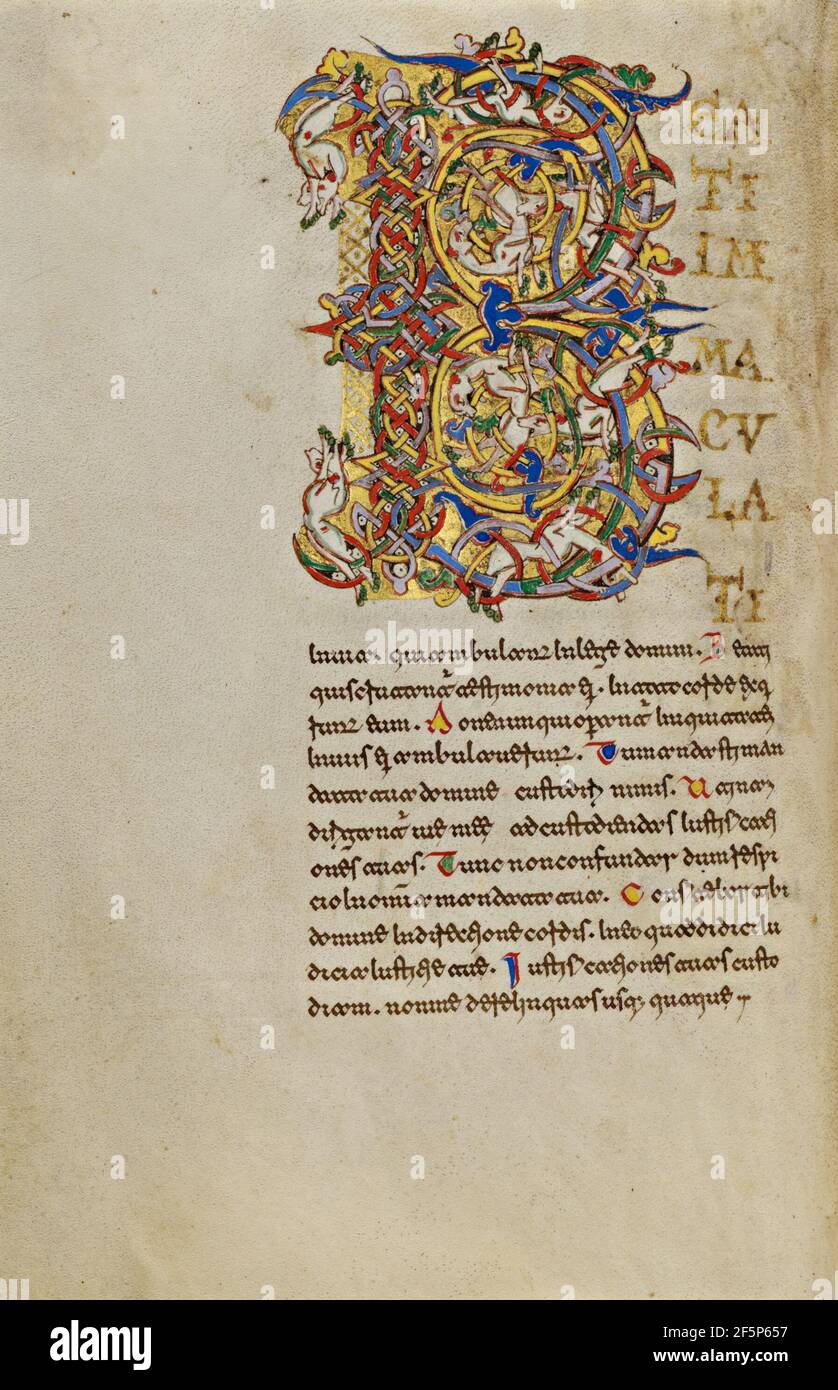 B
EA
TI
IM
MA
CV
LA
TI
in uia. qui ambulant in lege domini. Beati
qui scrutant̃ testimonia eꝰ. in toto corde exq
runt eum. Non enim qui operant̃ iniquitatẽ
in uiis eꝰ ambulauerunt. Tu mandasti man
data tua domine custodiri nimis. Utinam
dirigant̃ uie meę ad custodiendas iustificati
ones tuas. Tunc non confundar dum perspi
cio in omĩa mandata tua. Confitebor tibi
domine in directione cordis. in eo quod didici iu
dicia iustitię tue. Iustificationes tuas custo
diam. non me derelinquas usq; quaque
alamy
Image ID: 2F5P657
www.alamy.com